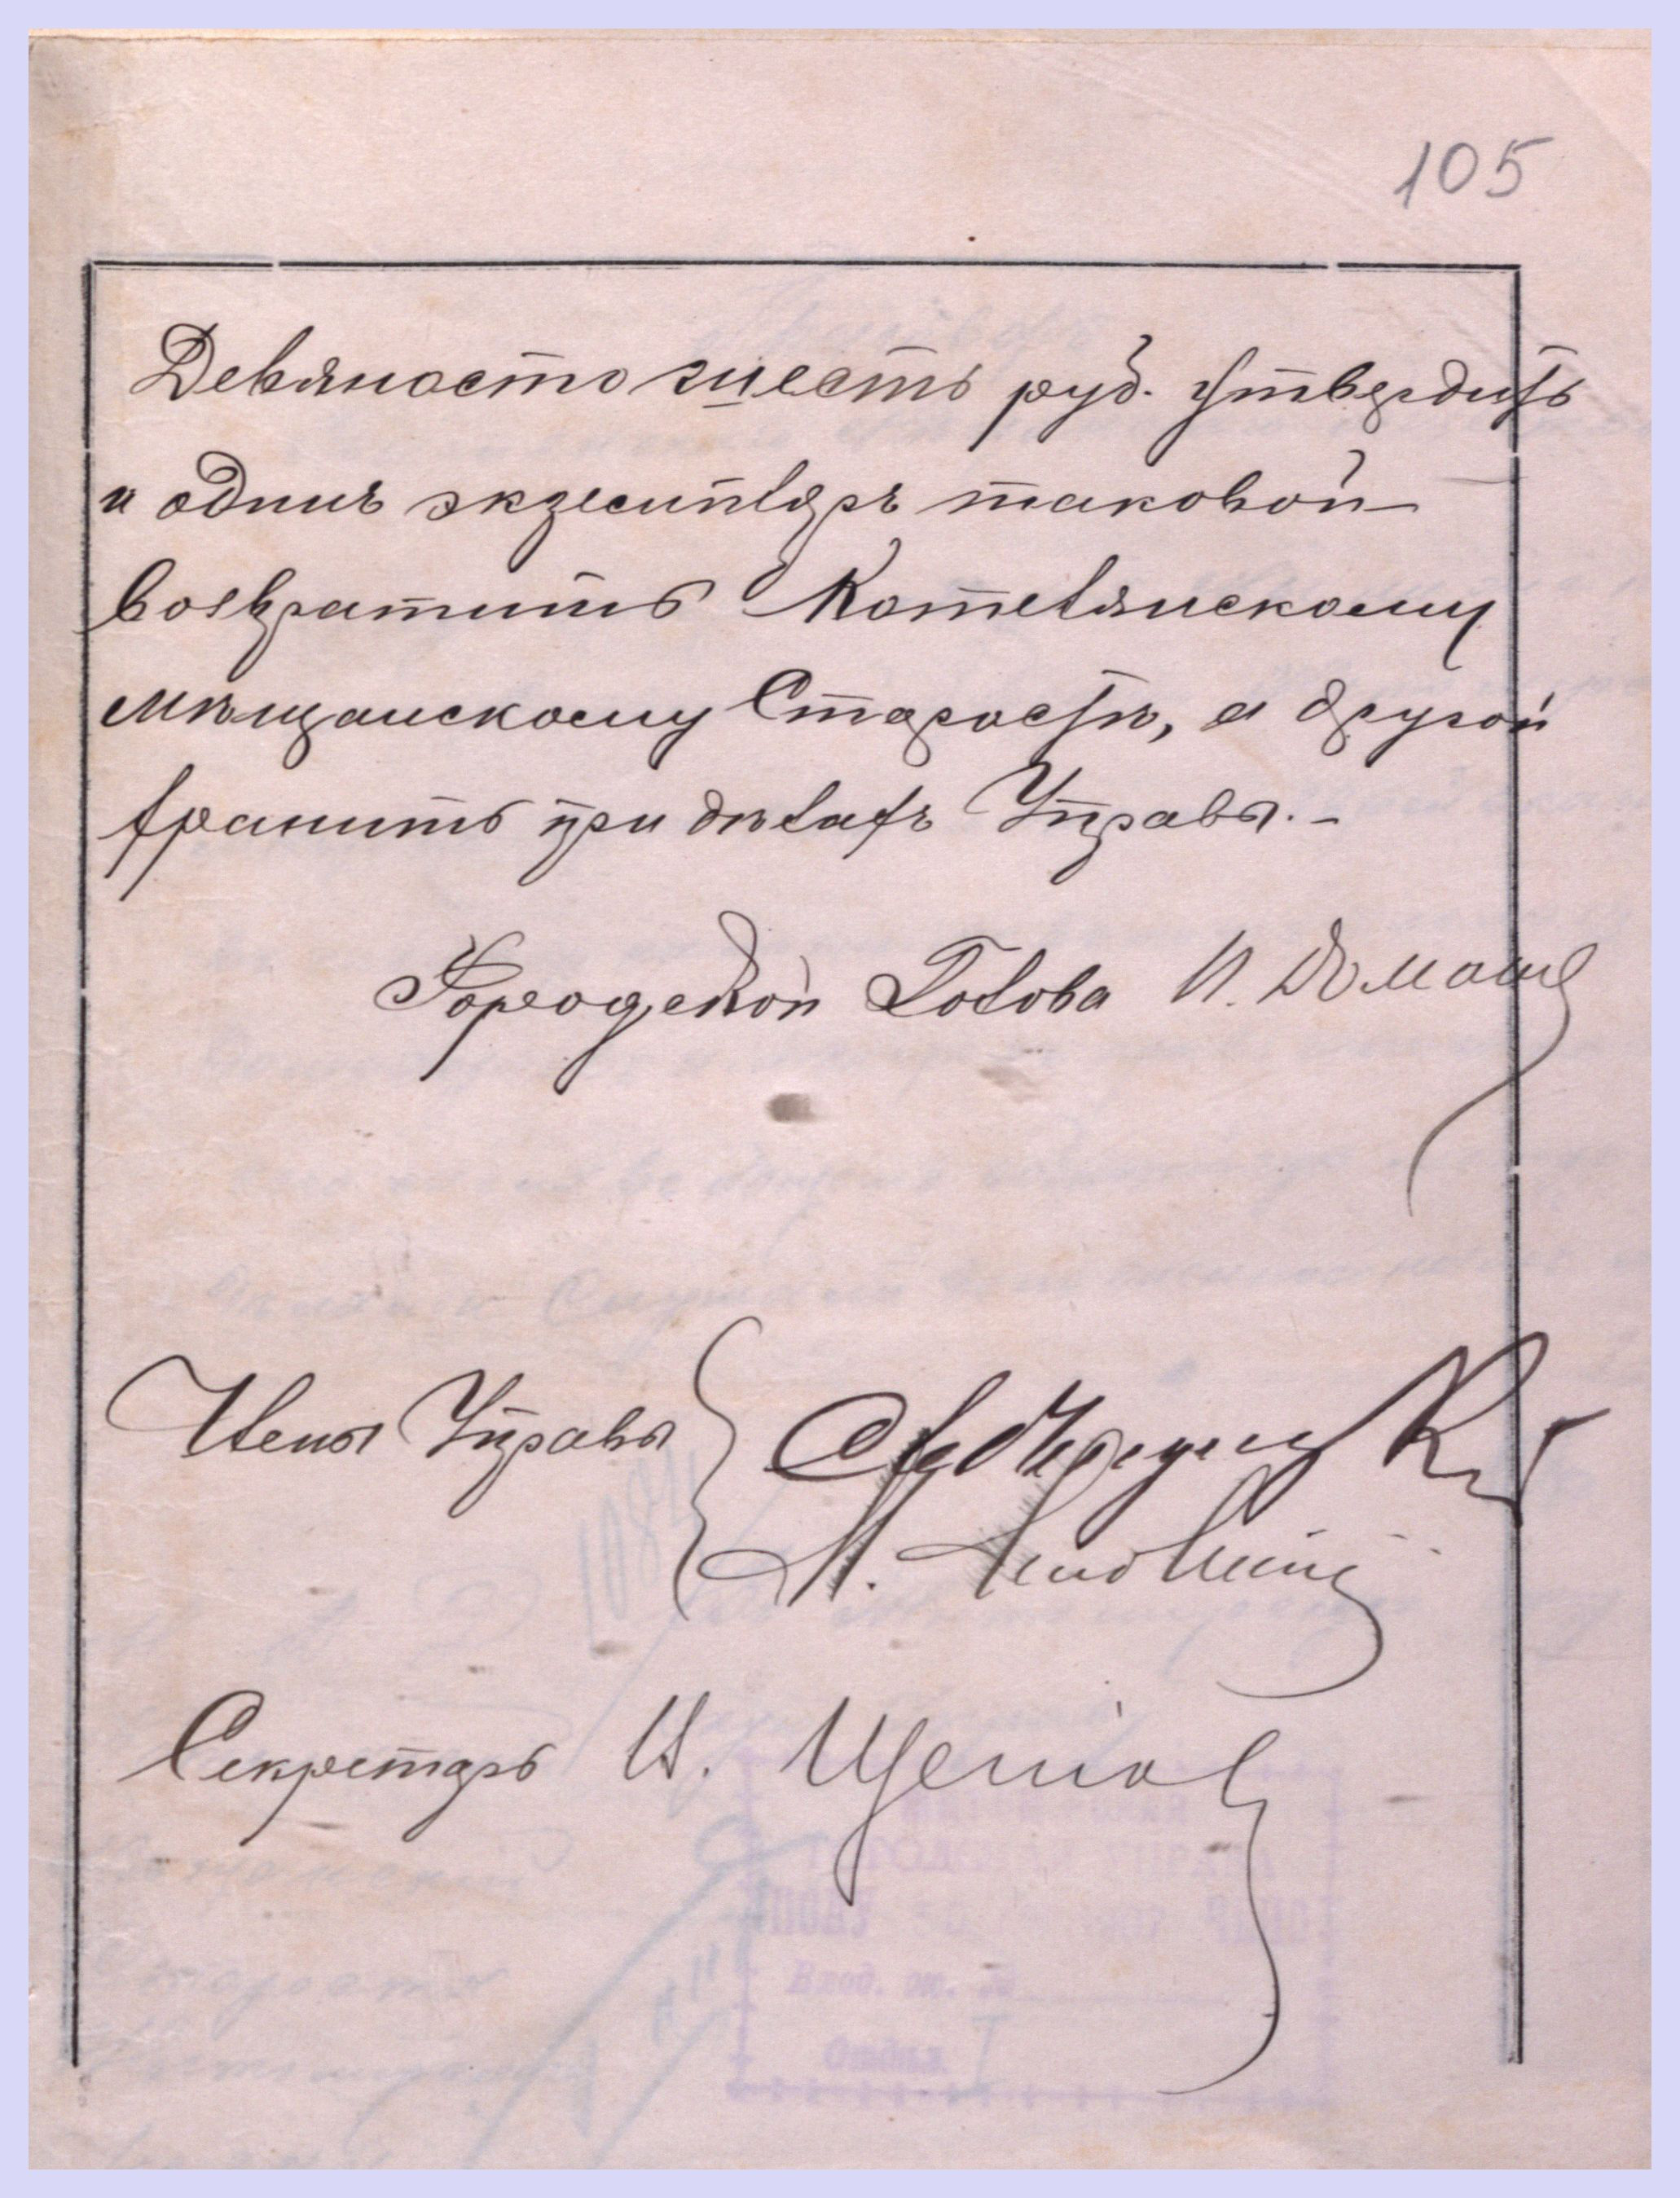 105
Девяносто шесть руб. утвердить
и одинъ экземпляръ таковой
возвратить Котелянскому
мѣщанскому Старостѣ, а другой
хранить при дѣлахъ Управы. –
Городской Голова И. Домаше
Члены Управы
М.
Секретарь И.
Вход. 
Отдѣлъ